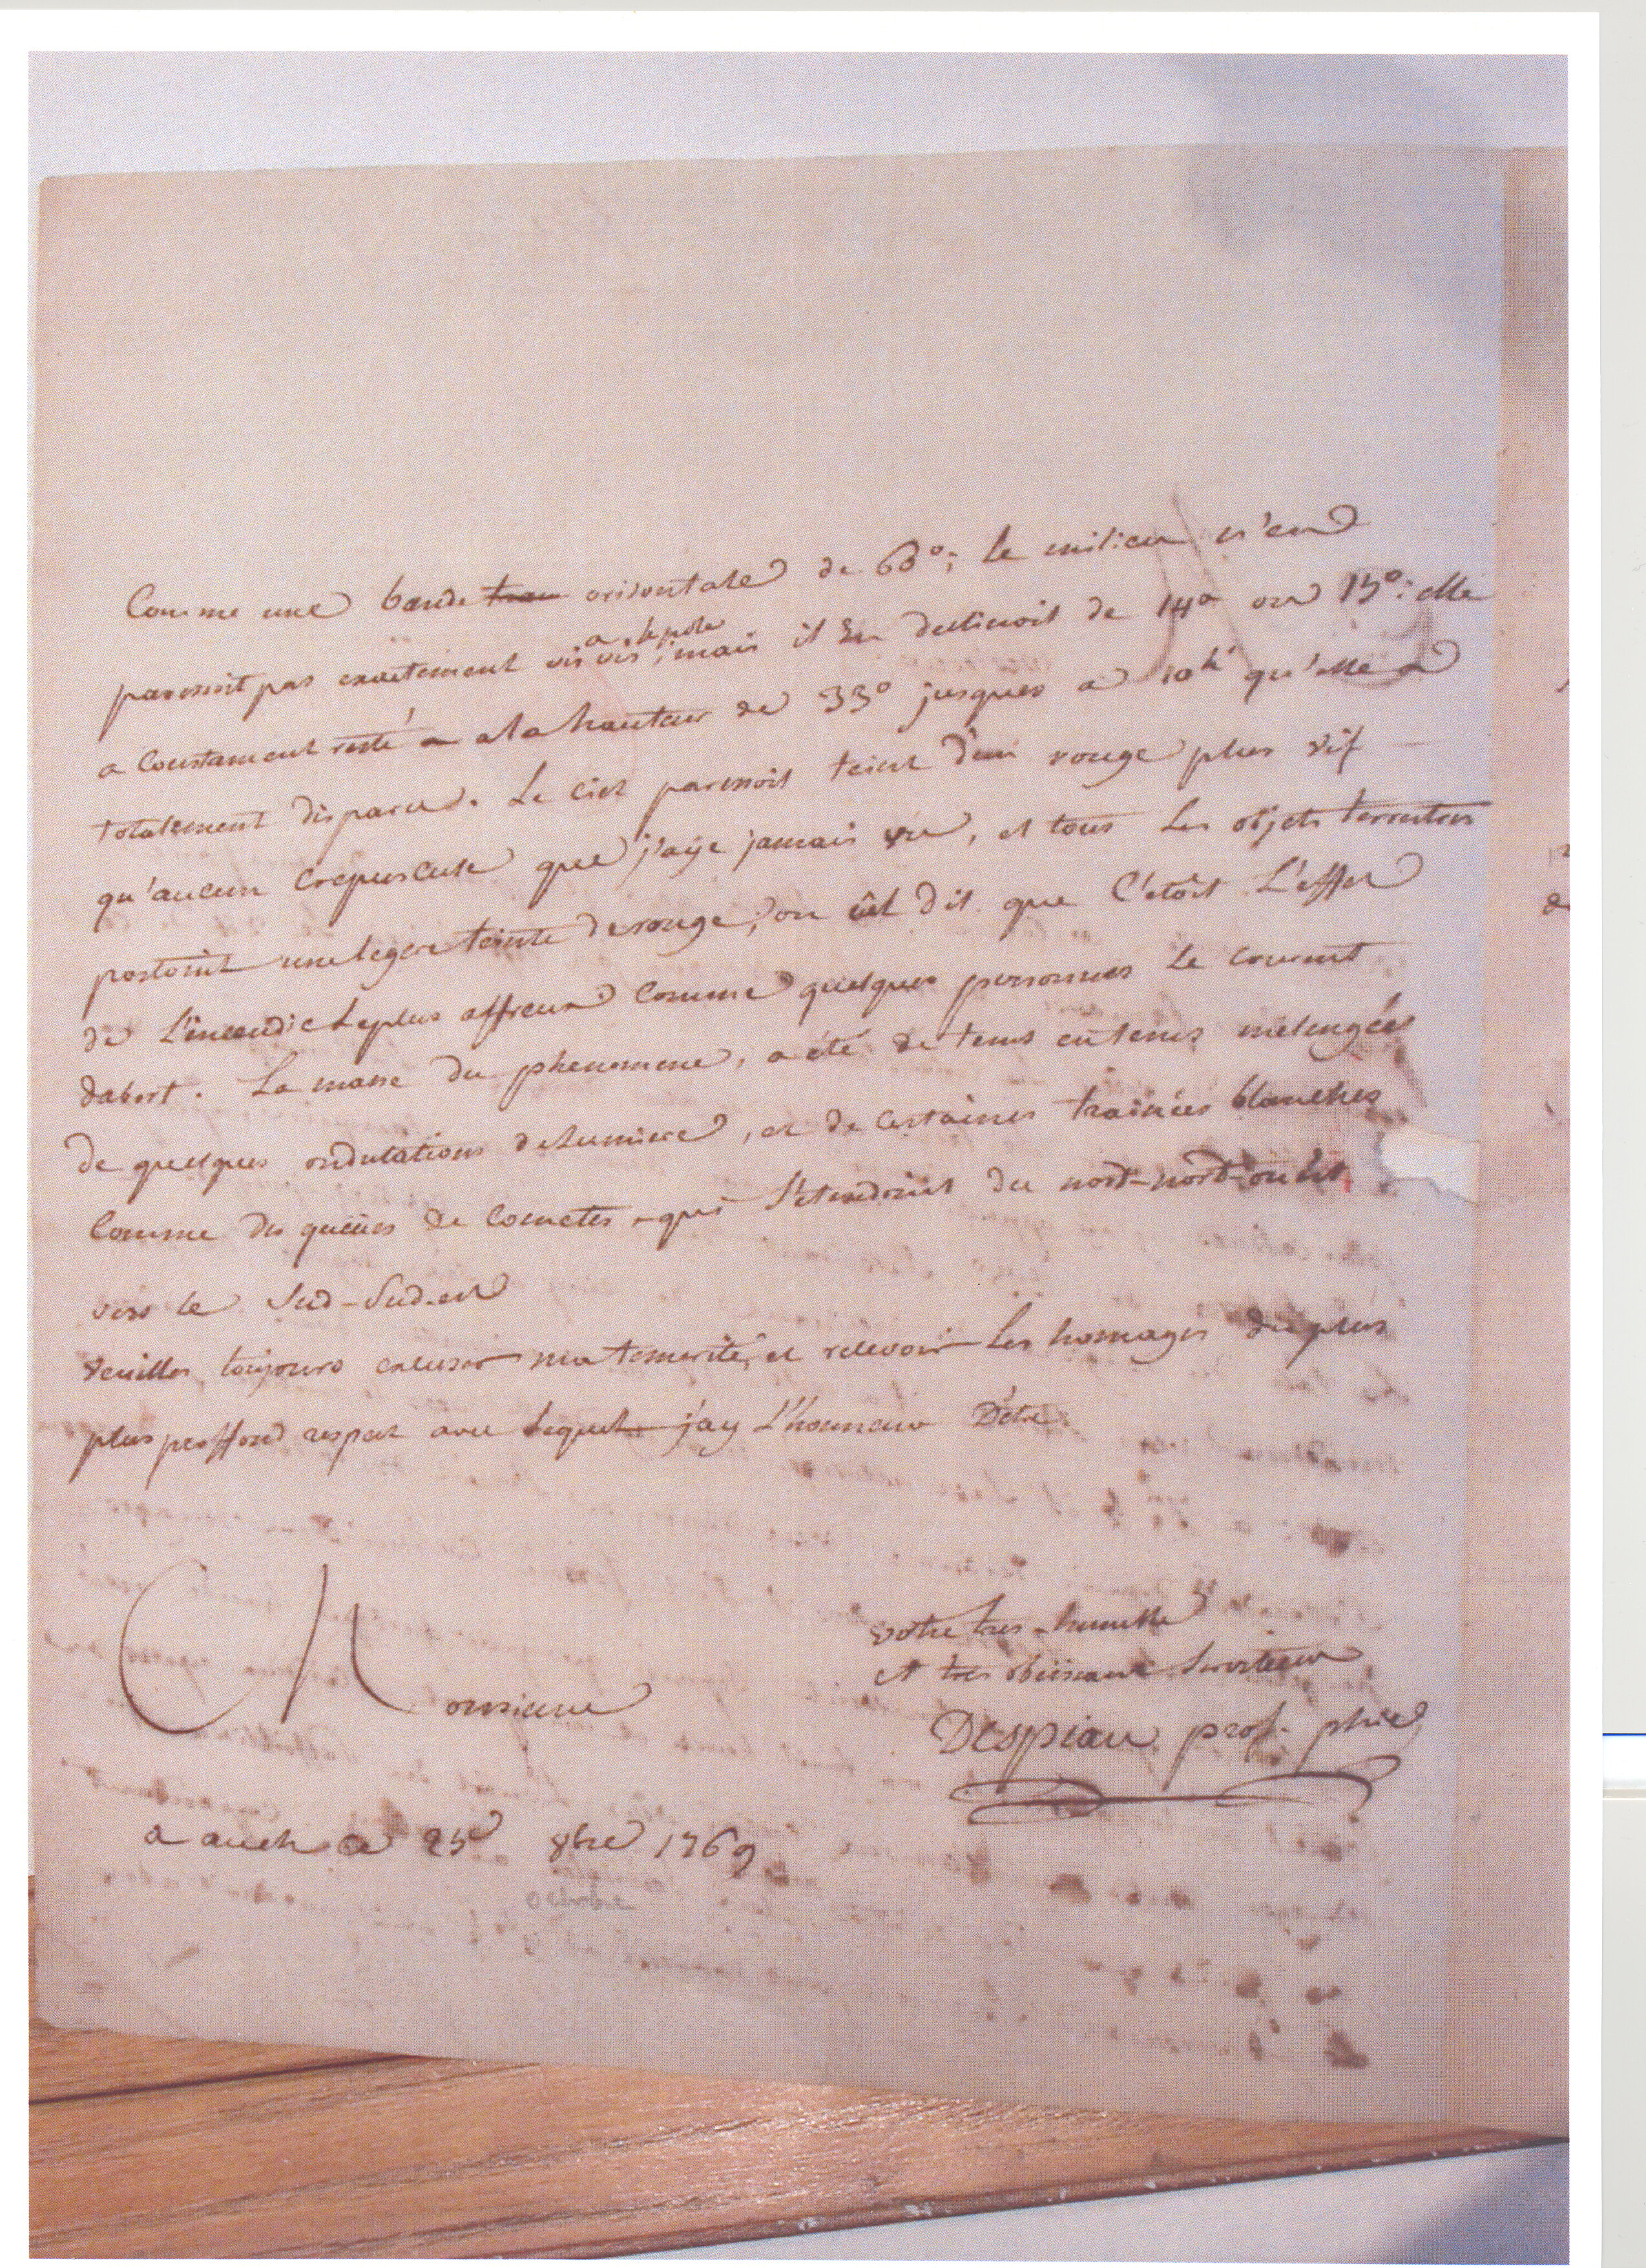 Comme une bande orisontale de 60°; le milieu n'en
paressoit pas exactement vis a vis le pole; mais il En declinoit de 14° ou 15°: elle
a Constament resté a la hauteur de 33° jusques a 10h qu'elle a
totalement disparu. Le Ciel paressoit teint D'un rouge plus vif
qu'aucun Crepuscule que j'aye jamais vu, et tous Les objets terrestres
portoint une legere teinte de rouge; on eût dit que C'etoit L'effet
de L'incendie le plus affreux Comme quelques personnes le crurent
dabort. La masse du phenomene, a été de tems en tems mélengée
de quelques ondulations de Lumiere, et de Certaines trainées blanches
Comme des queües de Cometes, qui S'etendoint du nord-nord-ouest
vers le Sud-Sud-est
veuilles toujours excuser ma temerité, et recevoir Les homages du plus
plus proffond respect avec Lequel j'ay L'honneur D'etre
Monsieur
votre tres-humble
et tres obeissant Serviteur
Despiau prof. phie
a auch ce 25 8bre 1769
octobre